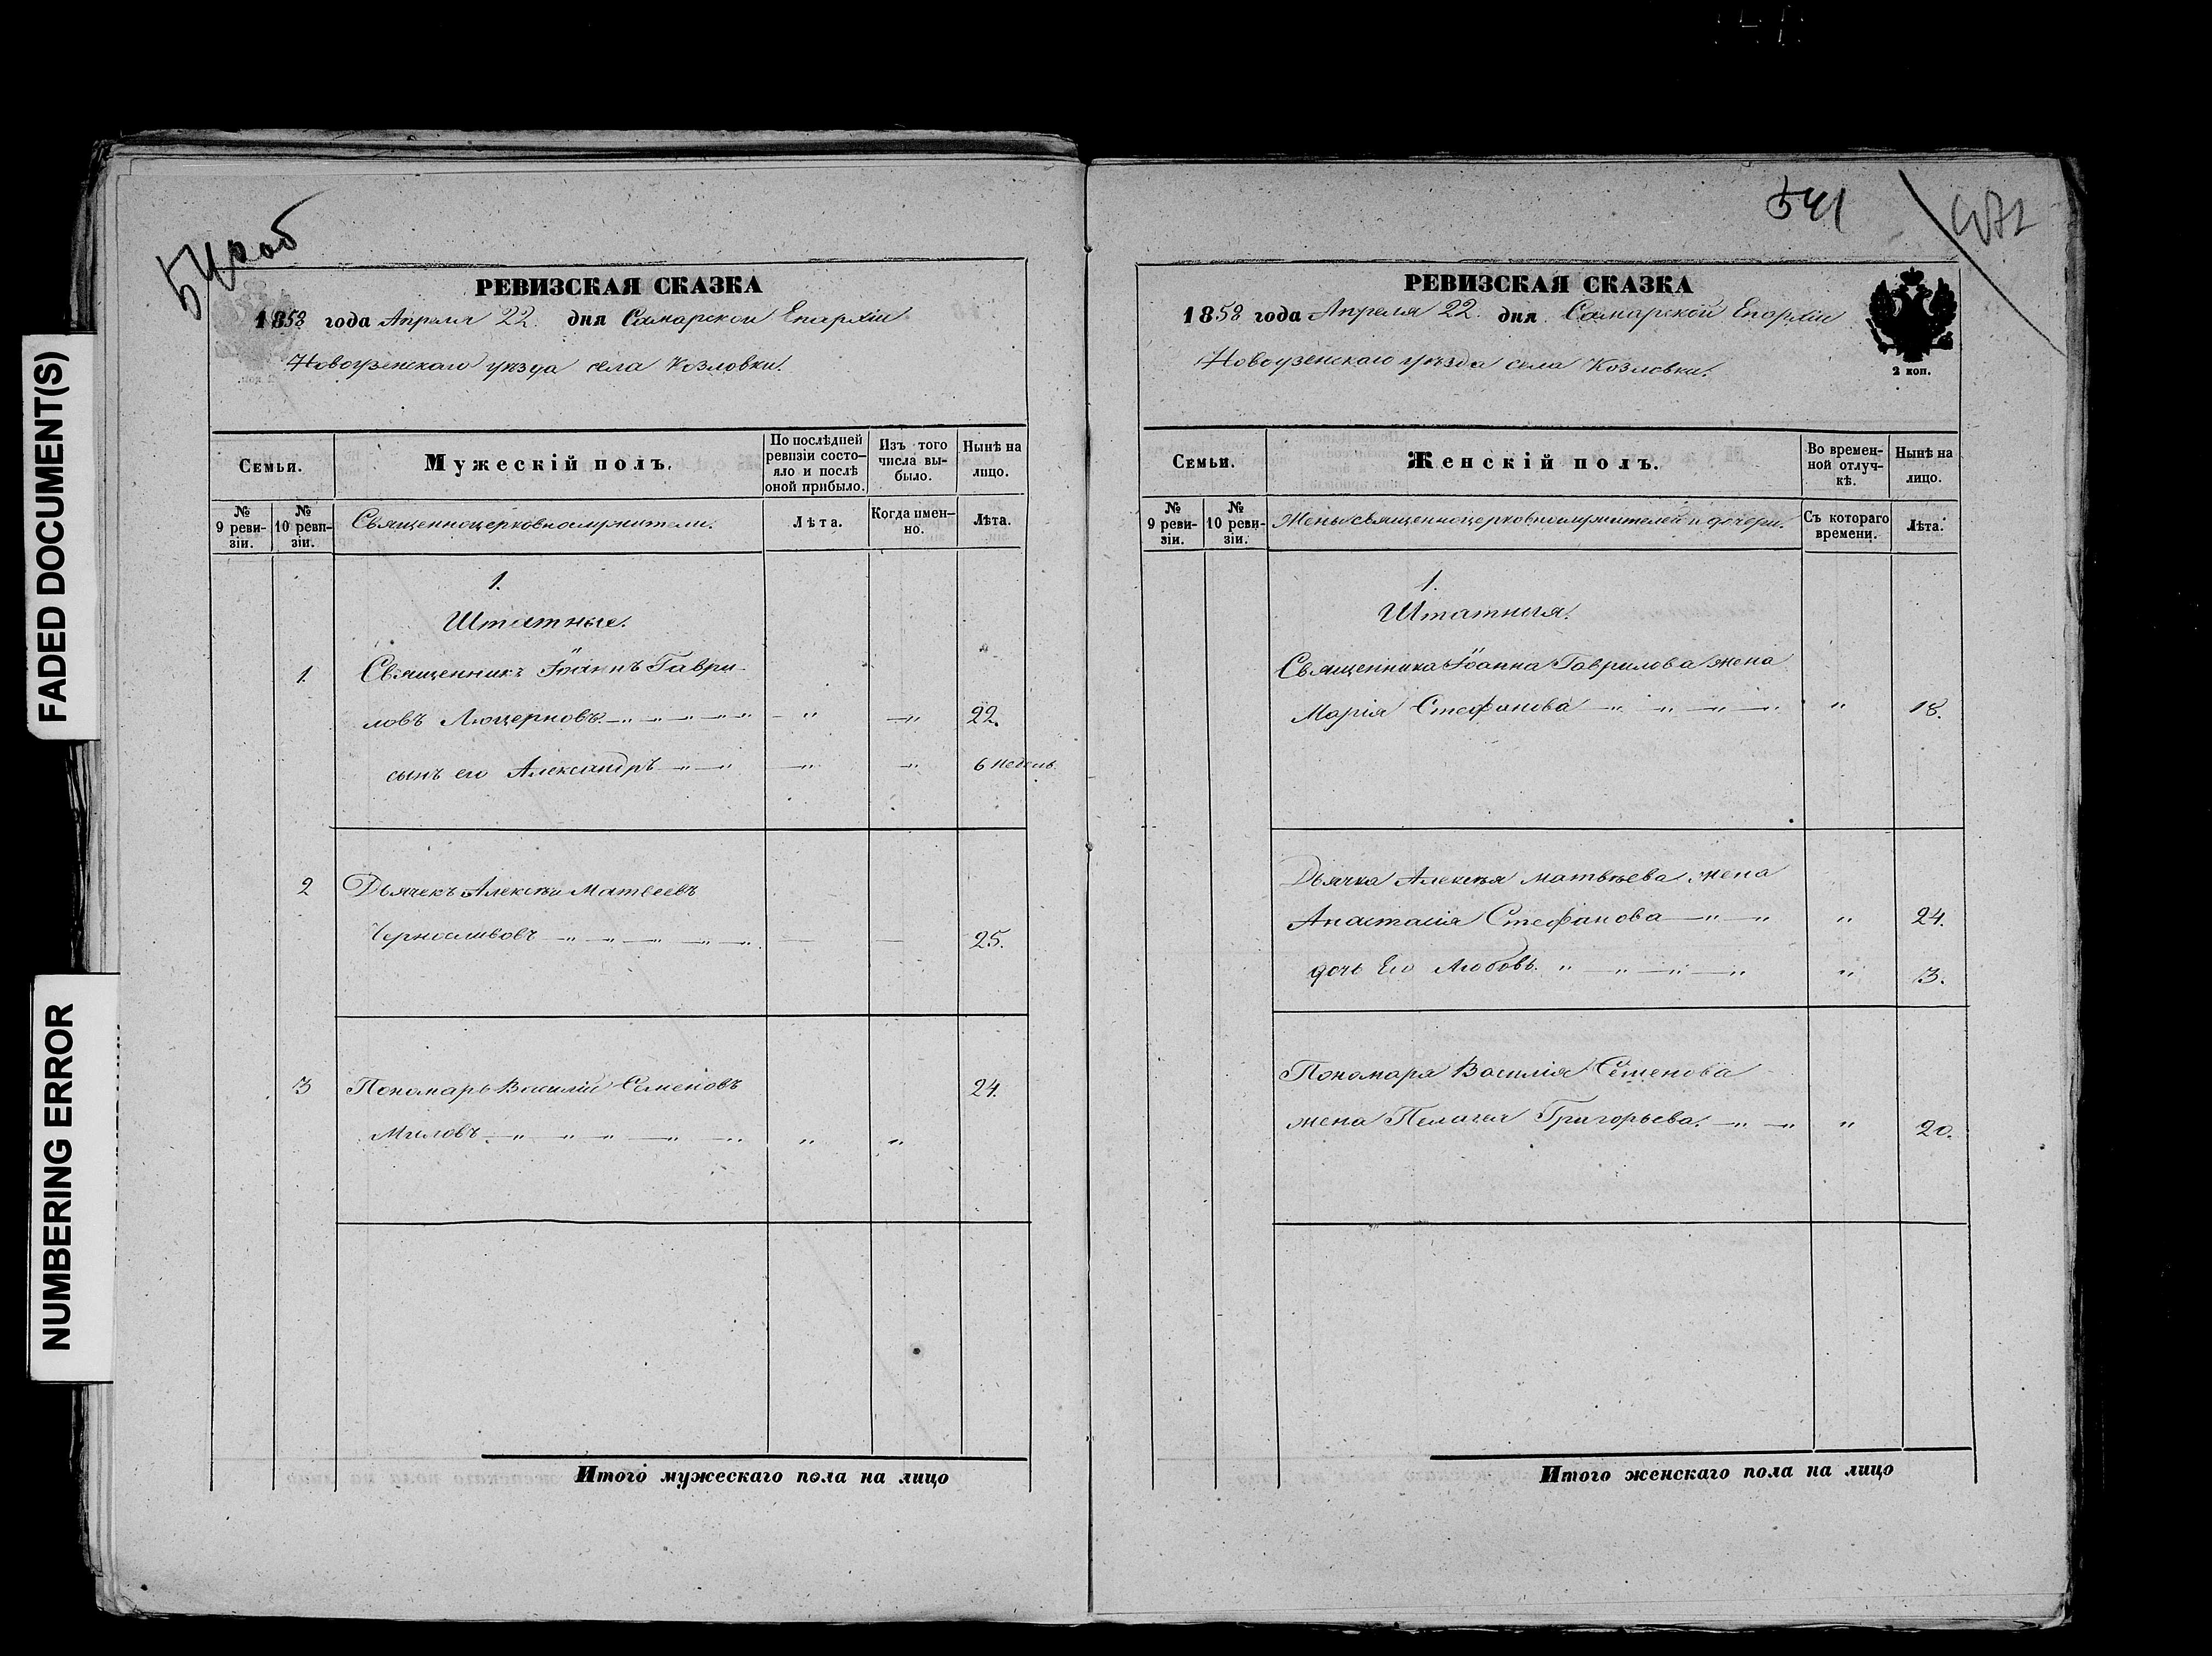 FADED DOCUMENT(S)
NUMBERING ERROR
540об
РЕВИЗСКАЯ СКАЗКА
1858 года Апреля 22. дня Самарской Епархіи
Новоузенскаго уѣзда села Козловки.
Семьи.
Мужескій полъ.
По послѣдней
ревизіи состо-
яло и послѣ
оной прибыло.
Изъ того
числа вы-
было.
Нынѣ на
лицо.
№
9 реви-
зіи.
№
10 реви-
зіи.
Священноцерковнослужители.
Лѣта.
Когда имен-
но.
Лѣта.
1.
Штатные.
1. Священникъ Іоаннъ Гаври-
ловъ Люцерновъ 22.
сынъ его Александръ 6 недель
2 Дьячекъ Алексѣй Матвеевъ
Черносливовъ 25.
3 Пономарь Василій Семеновъ 24.
Миловъ
Итого мужескаго пола на лицо
541
РЕВИЗСКАЯ СКАЗКА
1858 года Апреля 22. дня Самарской Епархіи
2 коп.
Новоузенскаго уѣзда села Козловки.
Семьи.
Женскій полъ.
Во времен-
ной отлуч-
кѣ.
Нынѣ на
лицо.
№
9 реви-
зіи.
№
10 реви-
зіи.
Жены священноцерковнослужителей и дочери.
Съ котораго
времени.
Лѣта.
1.
Штатныя.
Священника Іоанна Гаврилова жена
Марія Стефанова " 18.
Дьячка Алексѣя Матвѣева жена
Анастасія Стефанова " 24.
дочь Его Любовь. " 3.
Пономаря Василія Семенова
жена Пелагія Григорьева. " 20.
Итого женскаго пола на лицо